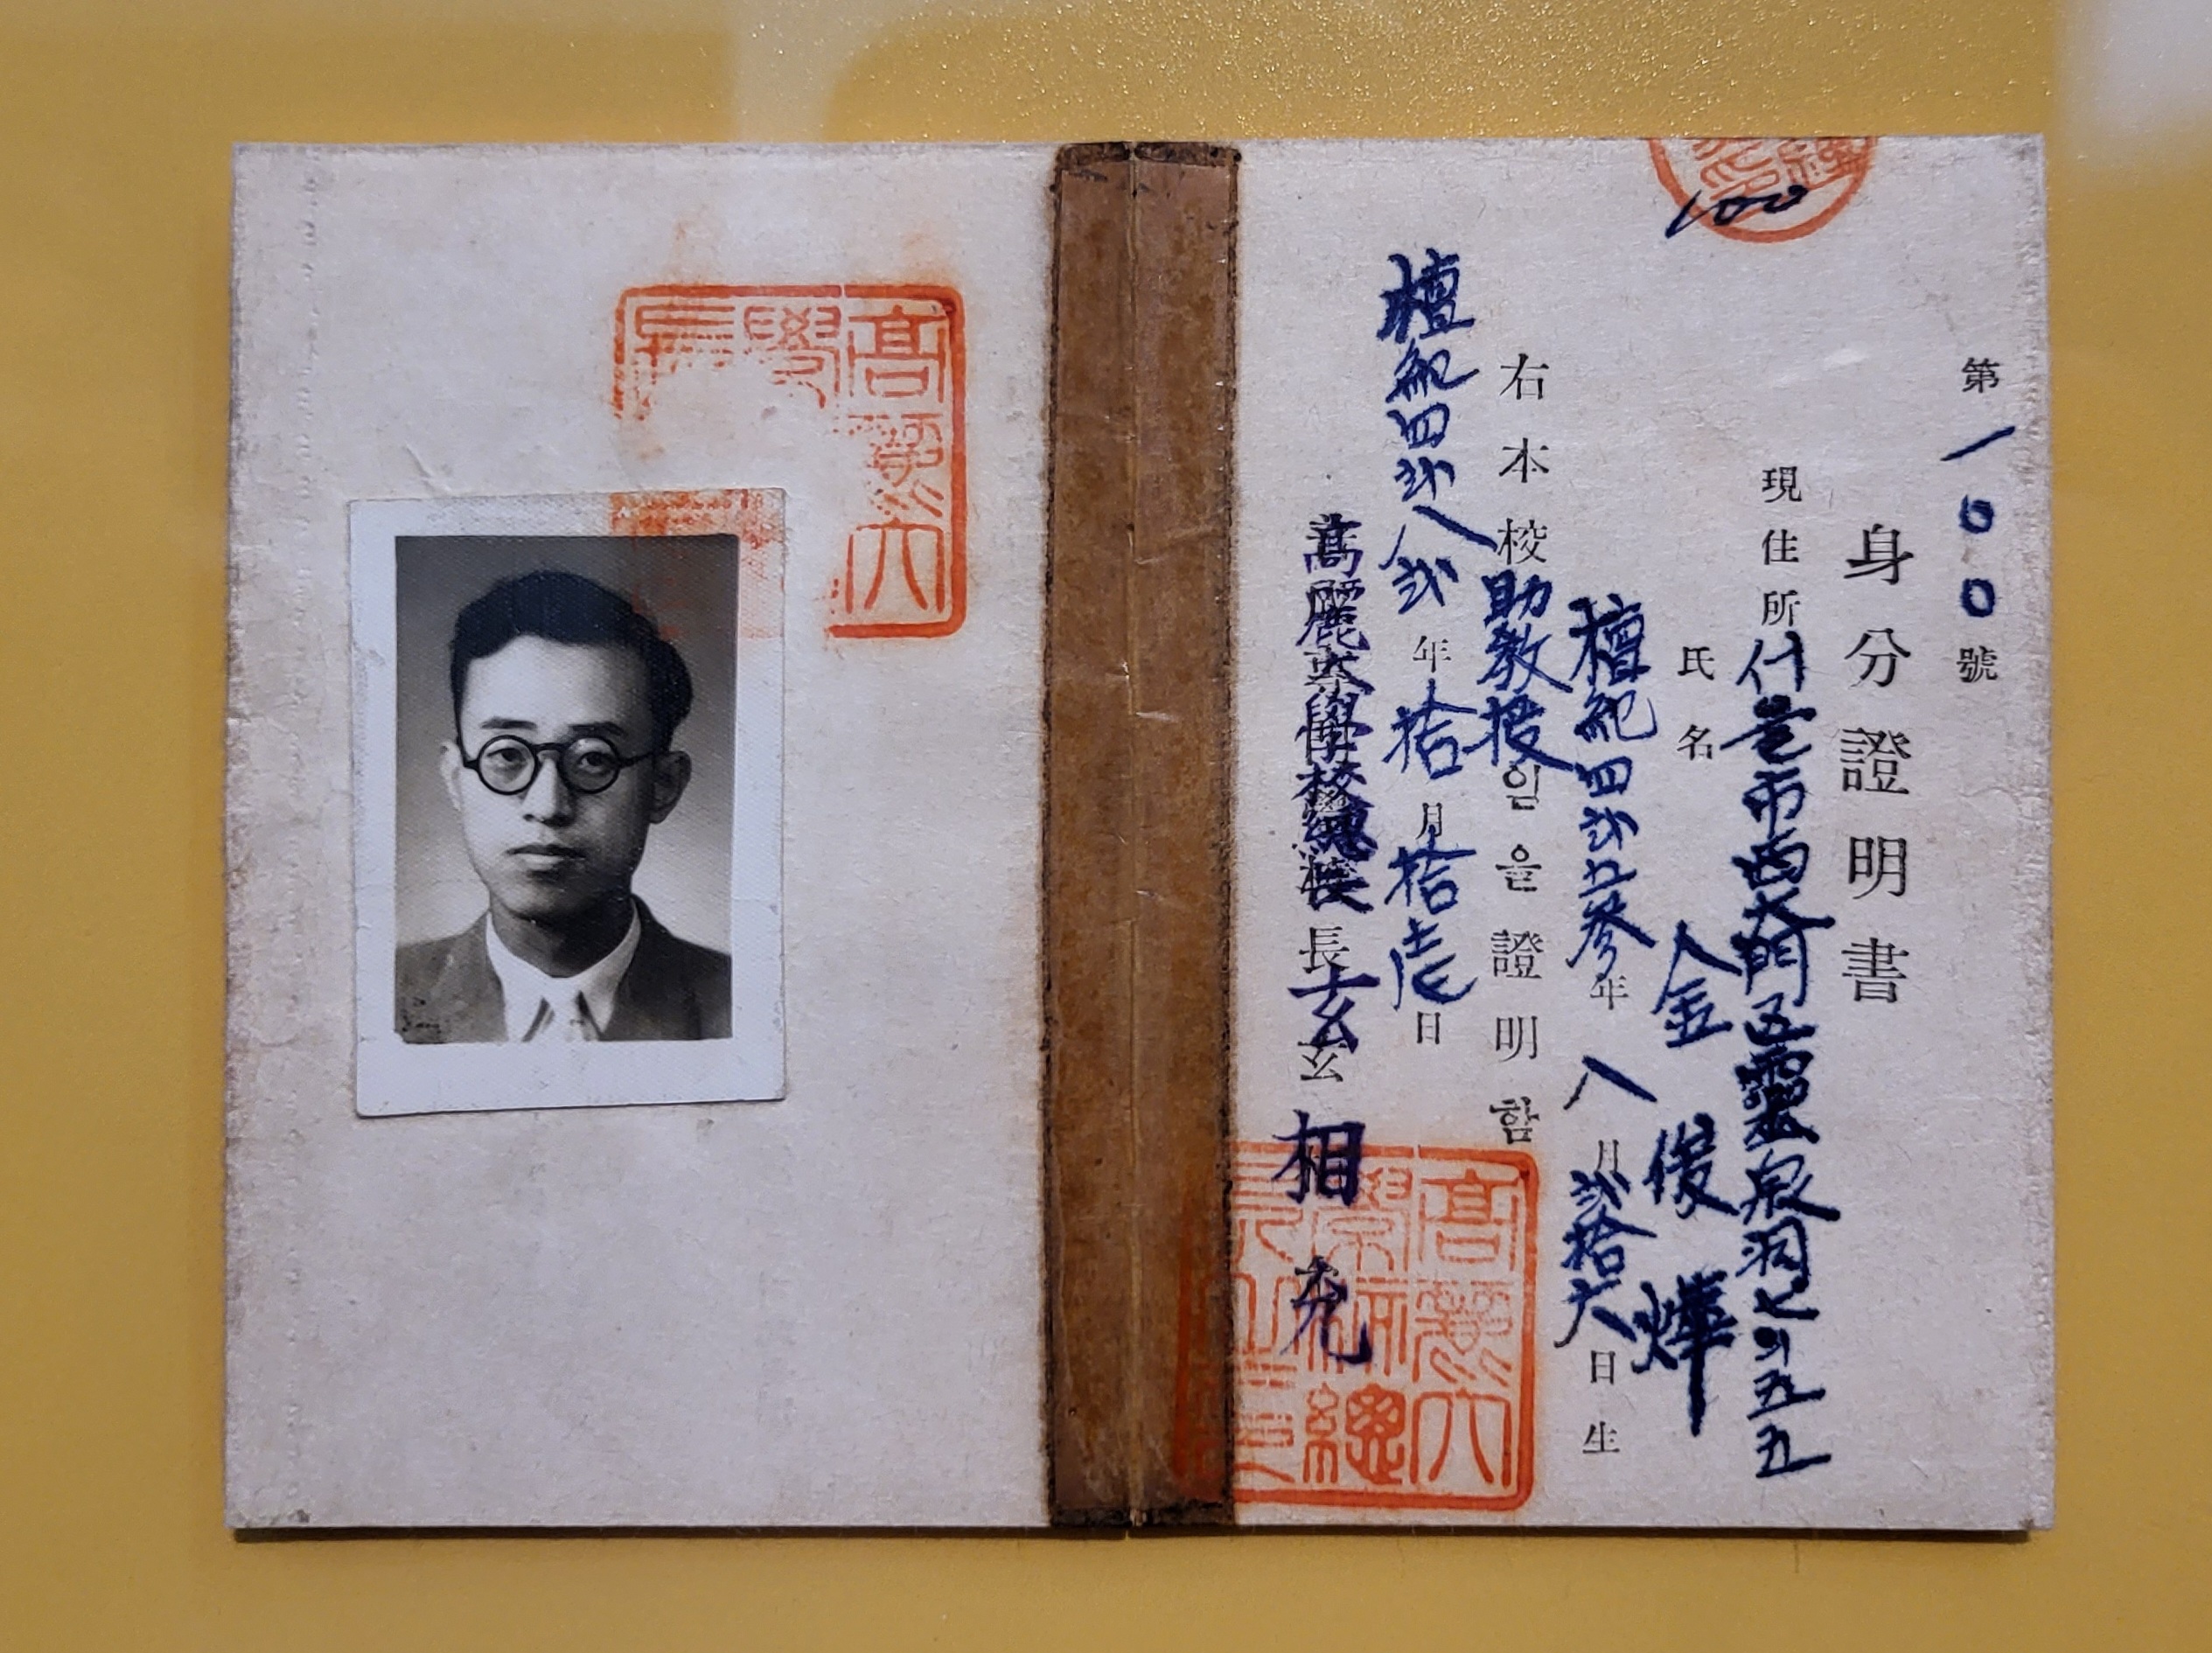 100
第一00號
身分證明書
現住所 서울市西大門区靈泉洞七의五五
氏名 金俊燁
檀紀四弐五参年八月弐拾六日生
右本校助教授임을證明함
檀紀四弐八弐年拾月拾壱日
高麗大學校總長
長玄
玄相允